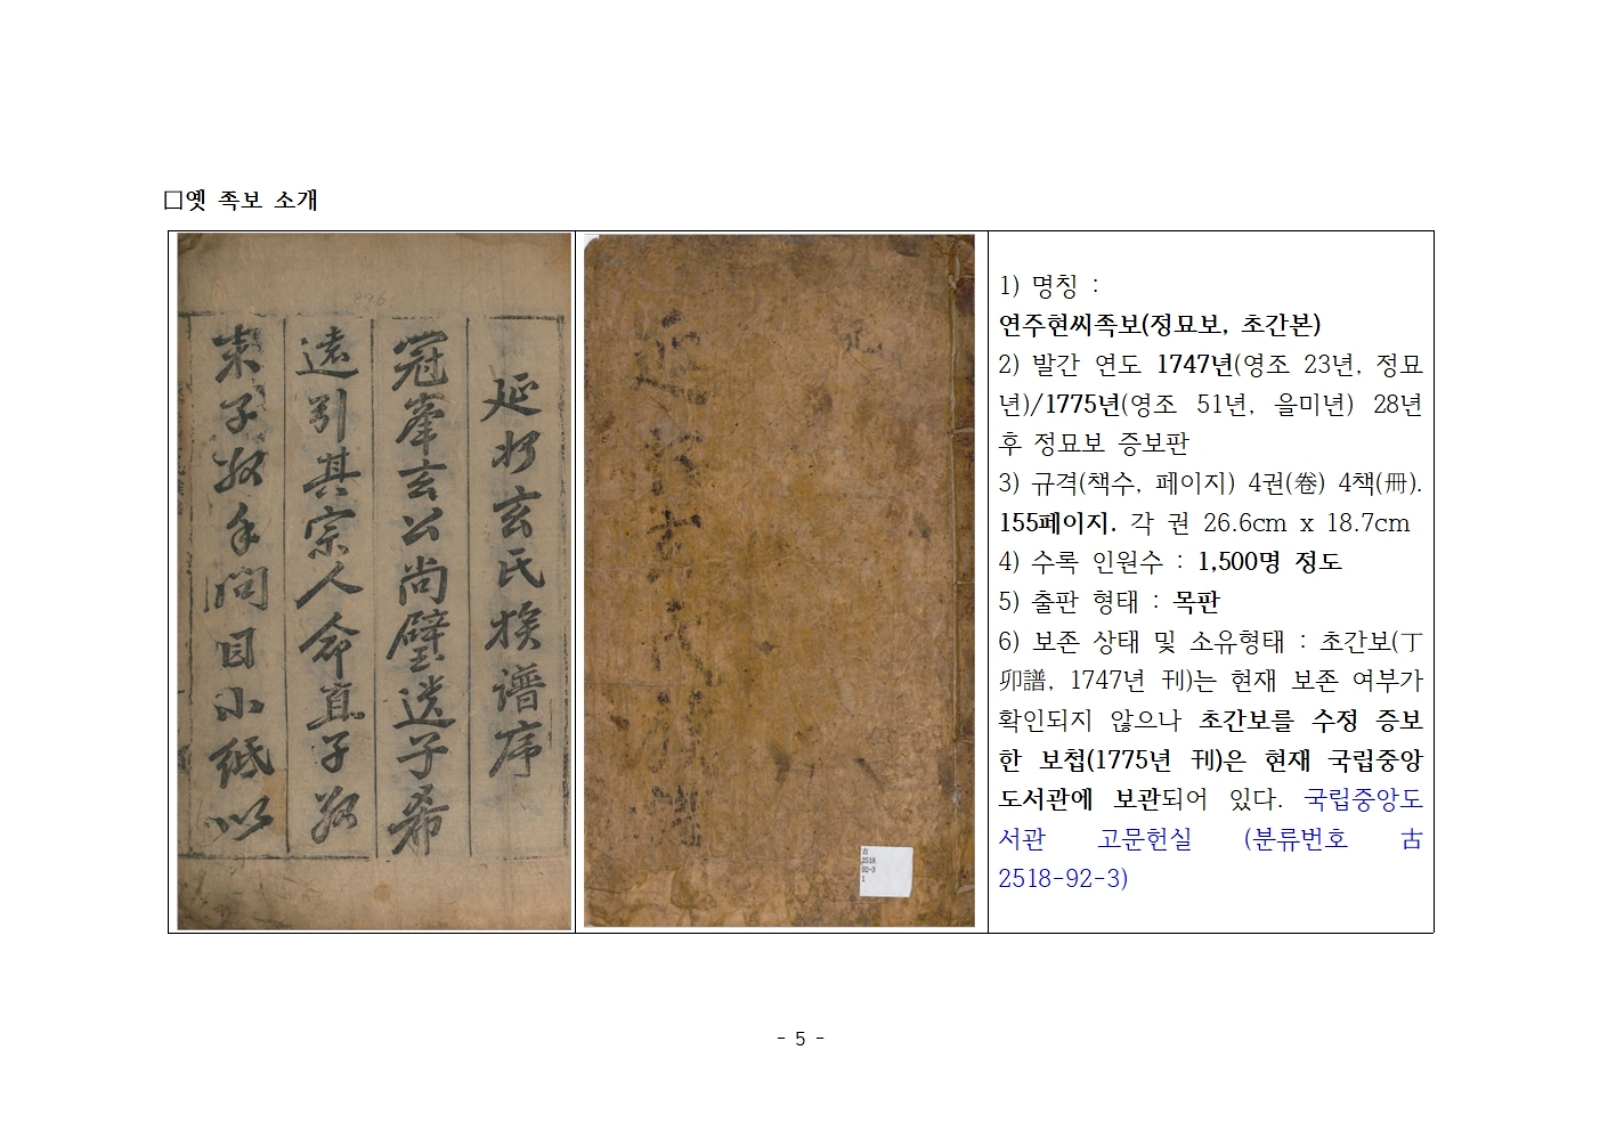 □옛 족보 소개
896
延州玄氏族譜序
冠峯玄公尚璧送子希
遠引其宗人命直子敬
来子敬手問目小紙以
延州玄氏族譜
古
2518
92-3
1
1) 명칭 :
연주현씨족보(정묘보, 초간본)
2) 발간 연도 1747년(영조 23년, 정묘
년)/1775년(영조 51년, 을미년) 28년
후 정묘보 증보판
3) 규격(책수, 페이지) 4권(卷) 4책(冊).
155페이지. 각 권 26.6cm x 18.7cm
4) 수록 인원수 : 1,500명 정도
5) 출판 형태 : 목판
6) 보존 상태 및 소유형태 : 초간보(丁
卯譜, 1747년 刊)는 현재 보존 여부가
확인되지 않으나 초간보를 수정 증보
한 보첩(1775년 刊)은 현재 국립중앙
도서관에 보관되어 있다. 국립중앙도
서관 고문헌실 (분류번호 古
2518-92-3)
- 5 -